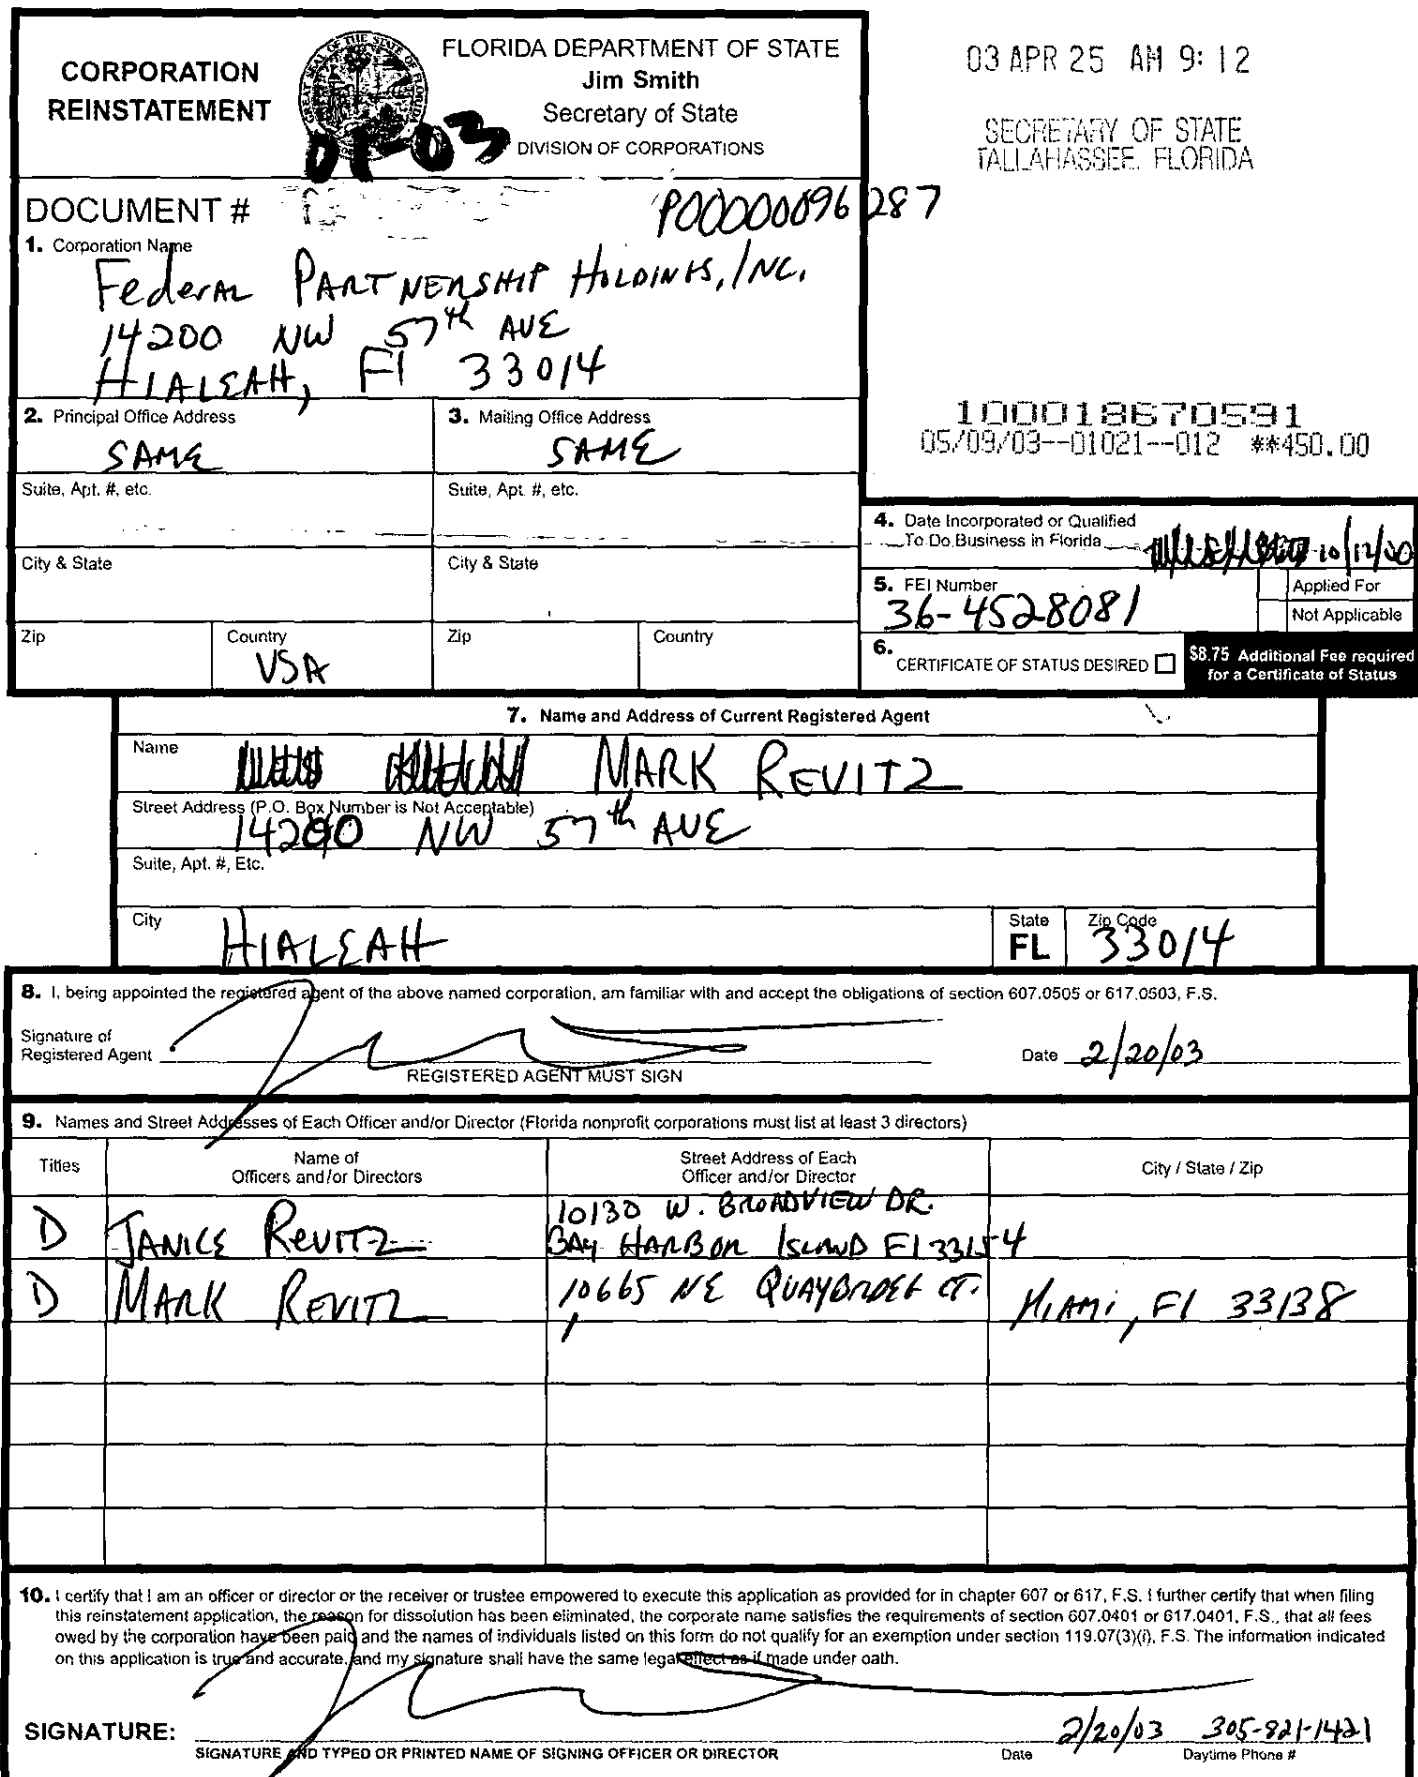 CORPORATION
REINSTATEMENT
FLORIDA DEPARTMENT OF STATE
Jim Smith
Secretary of State
DIVISION OF CORPORATIONS
01-03
03 APR 25 AM 9:12
SECRETARY OF STATE
TALLAHASSEE, FLORIDA
DOCUMENT # P00000096287
1. Corporation Name
Federal PARTNERSHIP HOLDINGS, INC.
14200 NW 57th AVE
HIALEAH, Fl 33014
100018670591
05/09/03--01021--012 **450.00
2. Principal Office Address
SAME
3. Mailing Office Address
SAME
Suite, Apt. #, etc.
Suite, Apt. #, etc.
City & State
City & State
Zip
Country
USA
Zip
Country
4. Date Incorporated or Qualified
To Do Business in Florida
10/12/00
5. FEI Number
36-4528081
Applied For
Not Applicable
6. CERTIFICATE OF STATUS DESIRED
$8.75 Additional Fee required
for a Certificate of Status
7. Name and Address of Current Registered Agent
Name
MARK REVITZ
Street Address (P.O. Box Number is Not Acceptable)
14200 NW 57th AVE
Suite, Apt. #, Etc.
City
HIALEAH
State
FL
Zip Code
33014
8. I, being appointed the registered agent of the above named corporation, am familiar with and accept the obligations of section 607.0505 or 617.0503, F.S.
Signature of
Registered Agent
REGISTERED AGENT MUST SIGN
Date 2/20/03
9. Names and Street Addresses of Each Officer and/or Director (Florida nonprofit corporations must list at least 3 directors)
Titles
Name of
Officers and/or Directors
Street Address of Each
Officer and/or Director
City / State / Zip
D JANICE REVITZ 10130 W. BROADVIEW DR.
BAY HARBOR ISLAND Fl 33154
D MARK REVITZ 10665 NE CT. MIAMI, Fl 33138
10. I certify that I am an officer or director or the receiver or trustee empowered to execute this application as provided for in chapter 607 or 617, F.S. I further certify that when filing
this reinstatement application, the reason for dissolution has been eliminated, the corporate name satisfies the requirements of section 607.0401 or 617.0401, F.S., that all fees
owed by the corporation have been paid and the names of individuals listed on this form do not qualify for an exemption under section 119.07(3)(i), F.S. The information indicated
on this application is true and accurate, and my signature shall have the same legal effect as if made under oath.
SIGNATURE:
2/20/03 305-821-1421
SIGNATURE AND TYPED OR PRINTED NAME OF SIGNING OFFICER OR DIRECTOR
Date
Daytime Phone #